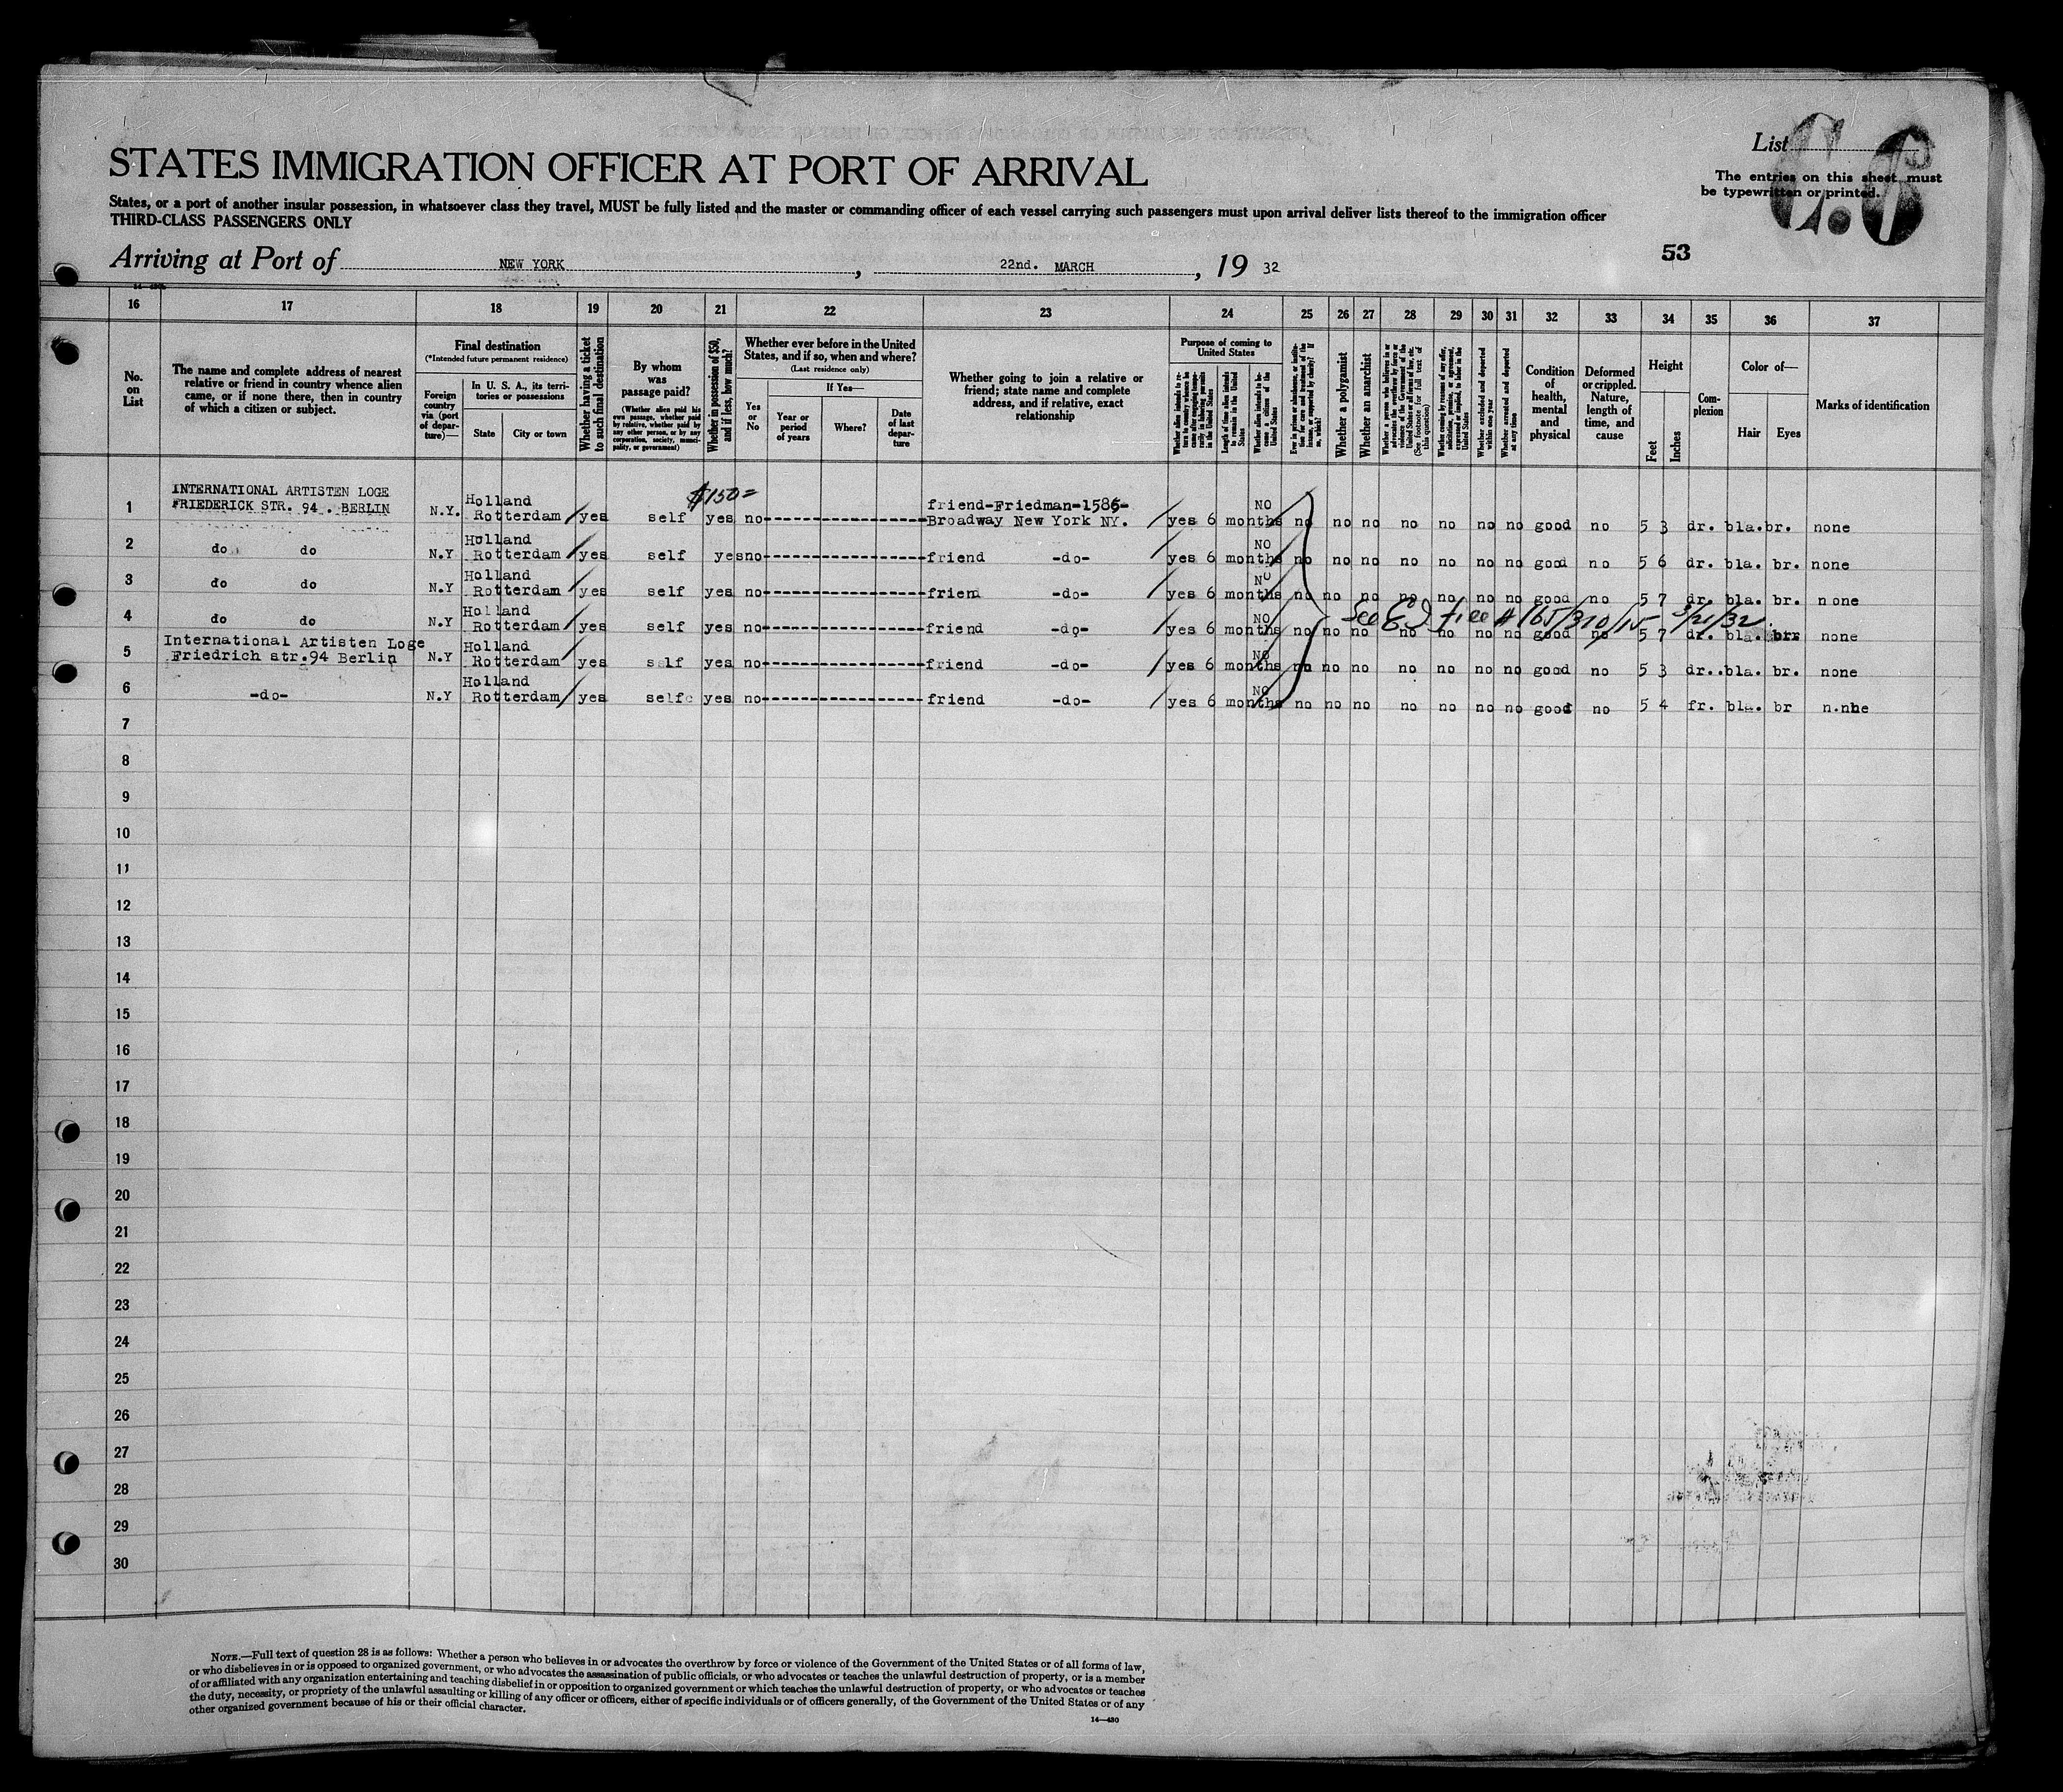 List
C.6
The entries on this sheet must
be typewritten or printed.
STATES IMMIGRATION OFFICER AT PORT OF ARRIVAL
States, or a port of another insular possession, in whatsoever class they travel, MUST be fully listed and the master or commanding officer of each vessel carrying such passengers must upon arrival deliver lists thereof to the immigration officer
THIRD-CLASS PASSENGERS ONLY
53
Arriving at Port of NEW YORK, 22nd. MARCH, 19 32
16 17 18 19 20 21 22 23 24 25 26 27 28 29 30 31 32 33 34 35 36 37
No. on List
The name and complete address of nearest
relative or friend in country whence alien
came, or if none there, then in country
of which a citizen or subject.
Final destination
(*Intended future permanent residence)
Foreign
country
via (port
of depar-
ture)—
In U. S. A., its terri-
tories or possessions
State
City or town
Whether having a ticket
to such final destination
By whom
was
passage paid?
(Whether alien paid his
own passage, whether paid
by relative, whether paid by
any other person, or by any
corporation, society, munici-
pality, or government)
Whether in possession of $50,
and if less, how much?
Whether ever before in the United
States, and if so, when and where?
(Last residence only)
Yes
or
No
If Yes—
Year or
period
of years
Where?
Date
of last
depar-
ture
Whether going to join a relative or
friend; state name and complete
address, and if relative, exact
relationship
Purpose of coming to
United States
Length of time alien intends
to remain in the United
States
Whether alien intends to be-
come a citizen of the
United States
Whether a polygamist
Whether an anarchist
(See footnote for full text of
this question)
Whether excluded and deported
within one year
Whether arrested and deported
at any time
Condition
of
health,
mental
and
physical
Deformed
or crippled.
Nature,
length of
time, and
cause
Height
Feet
Inches
Com-
plexion
Color of—
Hair
Eyes
Marks of identification
$150=
INTERNATIONAL ARTISTEN LOGE Holland friend-Friedman-1585- NO
1 FRIEDERICK STR. 94 . BERLIN N.Y. Rotterdam yes self yes no Broadway New York NY. yes 6 months no no no no no no no good no 5 3 dr. bla. br. none
Holland NO
2 do do N.Y Rotterdam yes self yes no friend -do- yes 6 months no no no no no no no good no 5 6 dr. bla. br. none
Holland NO
3 do do N.Y Rotterdam yes self yes no frien -do- yes 6 months no no no no no no no good no 5 7 dr. bla. br. none
See file # 165/310/15 3/21/32
Holland NO
4 do do N.Y Rotterdam yes self yes no friend -do- yes 6 months no no no no no no no good no 5 7 dr. bla. brr none
International Artisten Loge Holland NO
5 Friedrich str.94 Berlin N.Y Rotterdam yes self yes no friend -do- yes 6 months no no no no no no no good no 5 3 dr.. bla. br. none
Holland NO
6 -do- N.Y Rotterdam yes self yes no friend -do- yes 6 months no no no no no no no good no 5 4 fr. bla. br n.nhe
7
8
9
10
11
12
13
14
15
16
17
18
19
20
21
22
23
24
25
26
27
28
29
30
NOTE.—Full text of question 28 is as follows: Whether a person who believes in or advocates the overthrow by force or violence of the Government of the United States or of all forms of law,
or who disbelieves in or is opposed to organized government, or who advocates the assassination of public officials, or who advocates or teaches the unlawful destruction of property, or is a member
of or affiliated with any organization entertaining and teaching disbelief in or opposition to organized government or which teaches the unlawful destruction of property, or who advocates or teaches
the duty, necessity, or propriety of the unlawful assaulting or killing of any officer or officers, either of specific individuals or of officers generally, of the Government of the United States or of any
other organized government because of his or their official character.
14—430